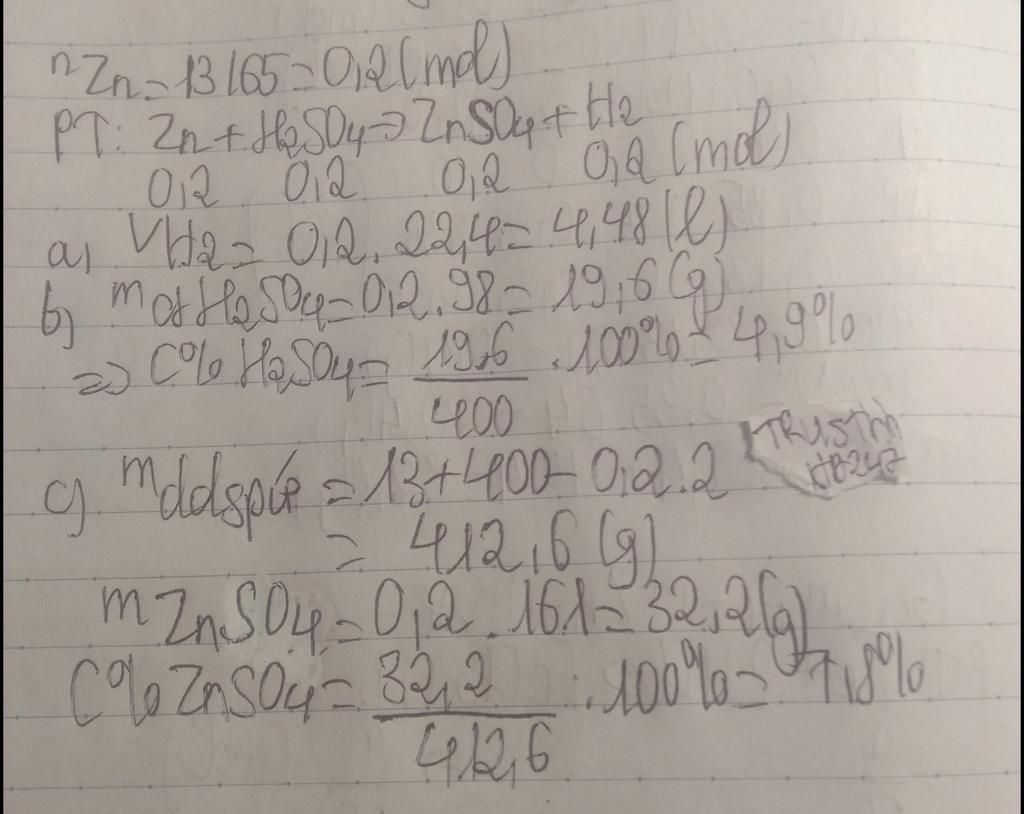 nZn=13/65=0,2(mol)
PT: Zn+H2SO4→ZnSO4+H2
0,2 0,2 0,2 0,2(mol)
a, VH2= 0,2.22,4=4,48(l)
b) mctH2SO4=0,2.98=19,6(g)
=> C%H2SO4= 19,6 .100%=4,9%
400
c) mddspứ=13+400-0,2.2
= 412,6(g)
mZnSO4=0,2.161=32,2(g)
C%ZnSO4= 32,2 .100%=7,8%
412,6